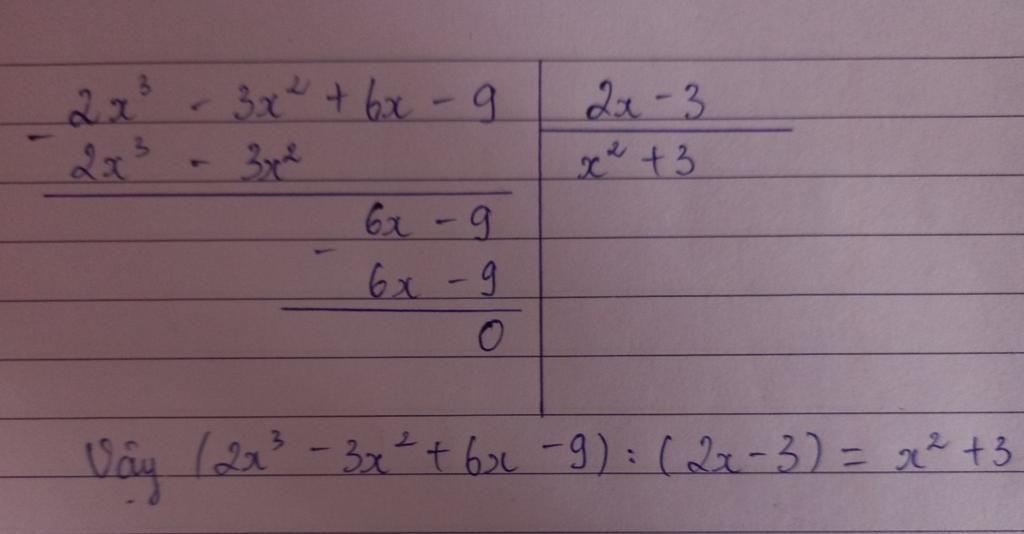 2x³ - 3x² + 6x - 9 | 2x - 3
- 2x³ - 3x² | x² + 3
6x - 9
- 6x - 9
0
Vậy (2x³ - 3x² + 6x - 9) : (2x - 3) = x² + 3